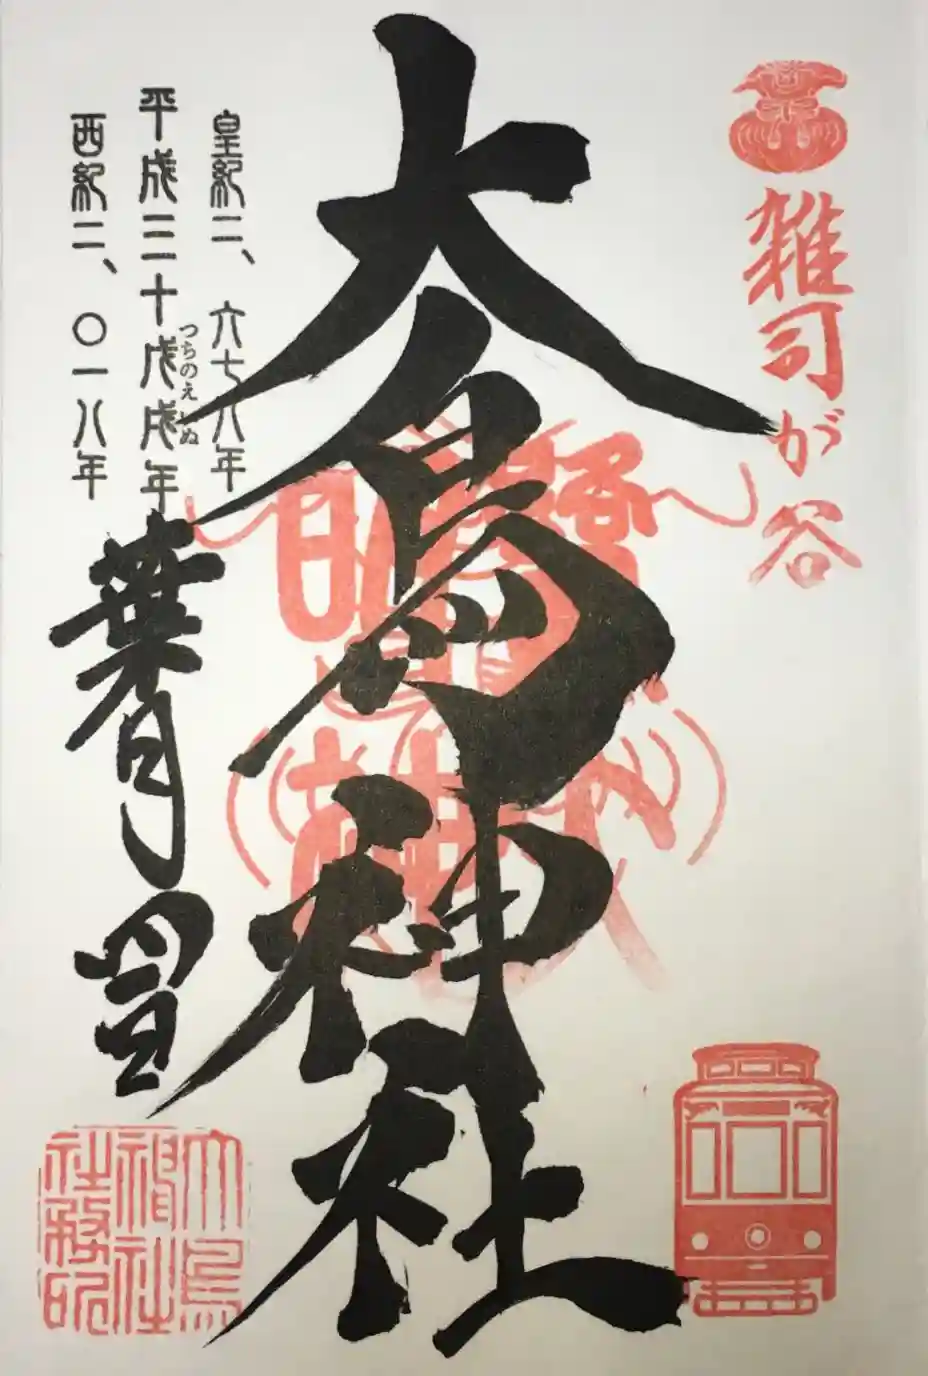 雑司が谷
大鳥神社
皇紀二、六七八年
平成三十戊戌年
つちのえいぬ
西紀二、〇一八年
葉月
大鳥
神社
社務所